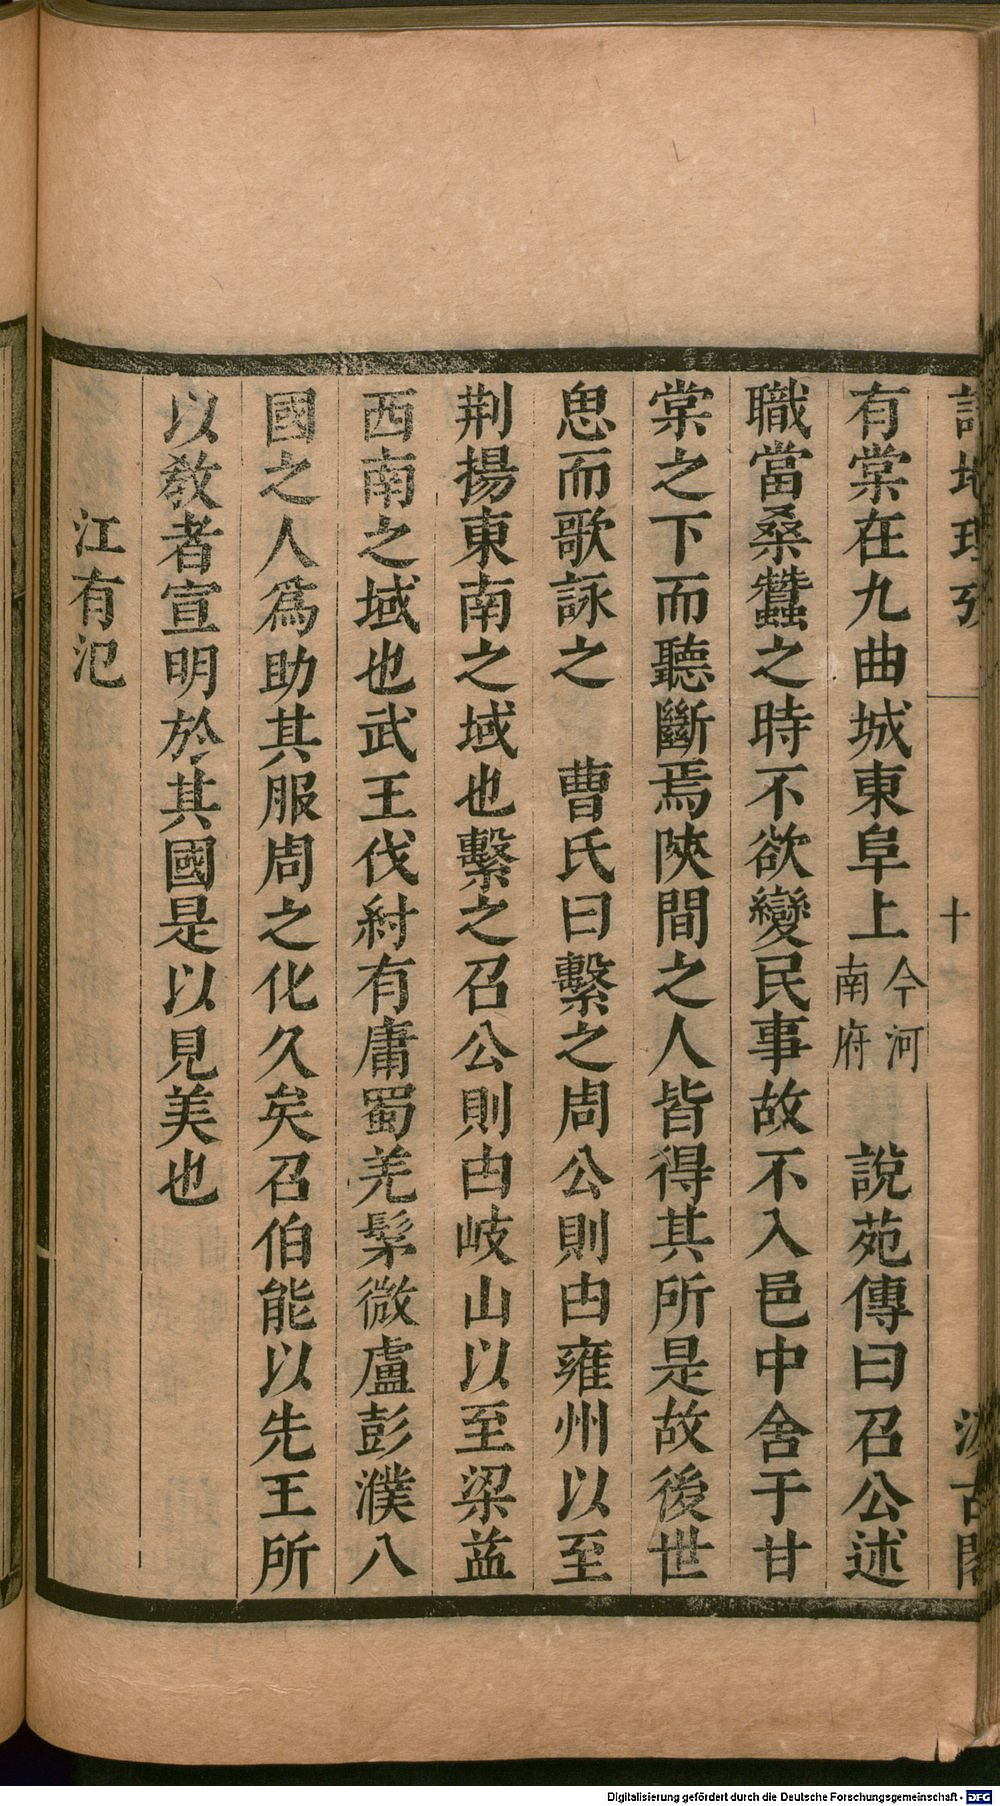 詩地理攷
十
汲古閣
有棠在九曲城東阜上今河南府　說苑傳曰召公述
職當桑蠶之時不欲變民事故不入邑中舍于甘
棠之下而聽斷焉陜間之人皆得其所是故後世
思而歌詠之　曹氏曰繫之周公則由雍州以至
荆揚東南之域也繫之召公則由岐山以至梁益
西南之域也武王伐紂有庸蜀羌髳微盧彭濮八
國之人爲助其服周之化久矣召伯能以先王所
以敎者宣明於其國是以見美也
江有汜
Digitalisierung gefördert durch die Deutsche Forschungsgemeinschaft - DFG